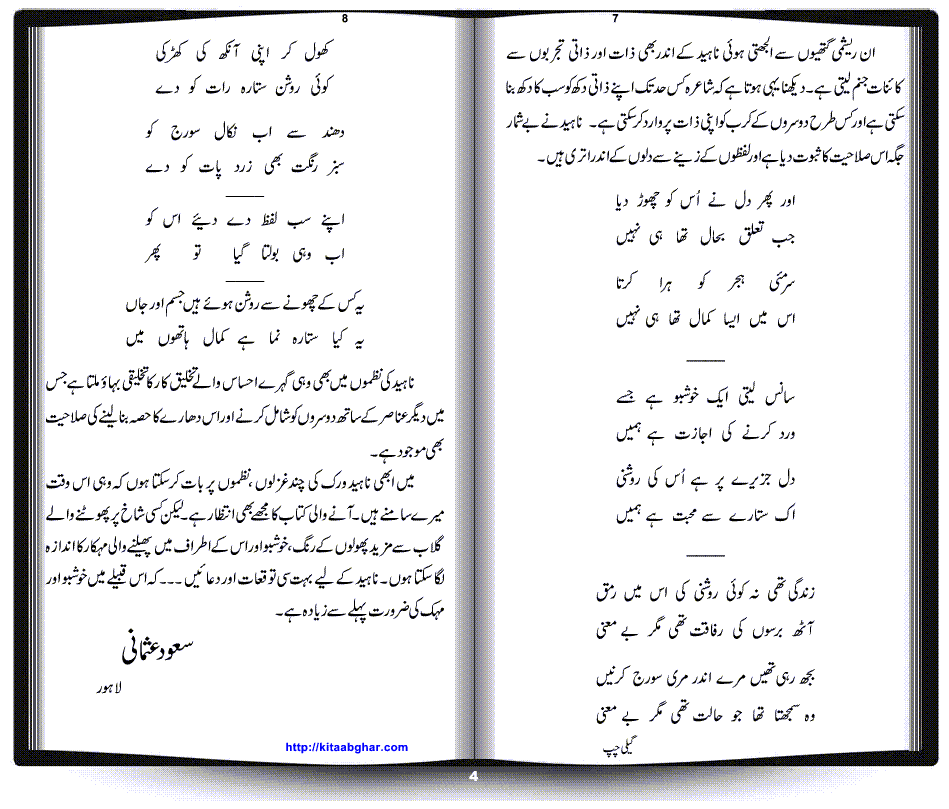 7
ان ریشمی گتھیوں سے الجھتی ہوئی ناہید کے اندر بھی ذات اور ذاتی تجربوں سے
کائنات جنم لیتی ہے۔ دیکھنا یہی ہوتا ہے کہ شاعرہ کس حد تک اپنے ذاتی دکھ کو سب کا دکھ بنا
سکتی ہے اور کس طرح دوسروں کے کرب کو اپنی ذات پر وارد کر سکتی ہے۔ ناہید نے بے شمار
جگہ اس صلاحیت کا ثبوت دیا ہے اور لفظوں کے زینے سے دلوں کے اندر اتری ہیں۔
اور پھر دل نے اُس کو چھوڑ دیا
جب تعلق بحال تھا ہی نہیں
سرمئی ہجر کو ہرا کرتا
اس میں ایسا کمال تھا ہی نہیں
سانس لیتی ایک خوشبو ہے جسے
ورد کرنے کی اجازت ہے ہمیں
دل جزیرے پر ہے اُس کی روشنی
اک ستارے سے محبت ہے ہمیں
زندگی تھی نہ کوئی روشنی کی اس میں رمق
آٹھ برسوں کی رفاقت تھی مگر بے معنی
بجھ رہی تھیں مرے اندر مری سورج کرنیں
وہ سمجھتا تھا جو حالت تھی مگر بے معنی
گیلی چپ
8
کھول کر اپنی آنکھ کی کھڑکی
کوئی روشن ستارہ رات کو دے
دھند سے اب نکال سورج کو
سبز رنگت بھی زرد پات کو دے
اپنے سب لفظ دے دیئے اس کو
اب وہی بولتا گیا تو پھر
یہ کس کے چھونے سے روشن ہوئے ہیں جسم اور جاں
یہ کیا ستارہ نما ہے کمال ہاتھوں میں
ناہید کی نظموں میں بھی وہی گہرے احساس والے تخلیق کار کا تخلیقی بہاؤ ملتا ہے جس
میں دیگر عناصر کے ساتھ دوسروں کو شامل کرنے اور اس دھارے کا حصہ بنا لینے کی صلاحیت
بھی موجود ہے۔
میں ابھی ناہید ورک کی چند غزلوں، نظموں پر بات کر سکتا ہوں کہ وہی اس وقت
میرے سامنے ہیں۔ آنے والی کتاب کا مجھے بھی انتظار ہے۔ لیکن کسی شاخ پر پھوٹنے والے
گلاب سے مزید پھولوں کے رنگ، خوشبو اور اس کے اطراف میں پھیلنے والی مہکار کا اندازہ
لگا سکتا ہوں۔ ناہید کے لیے بہت سی توقعات اور دعائیں ۔۔۔ کہ اس قبیلے میں خوشبو اور
مہک کی ضرورت پہلے سے زیادہ ہے۔
سعود عثمانی
لاہور
http://kitaabghar.com
4